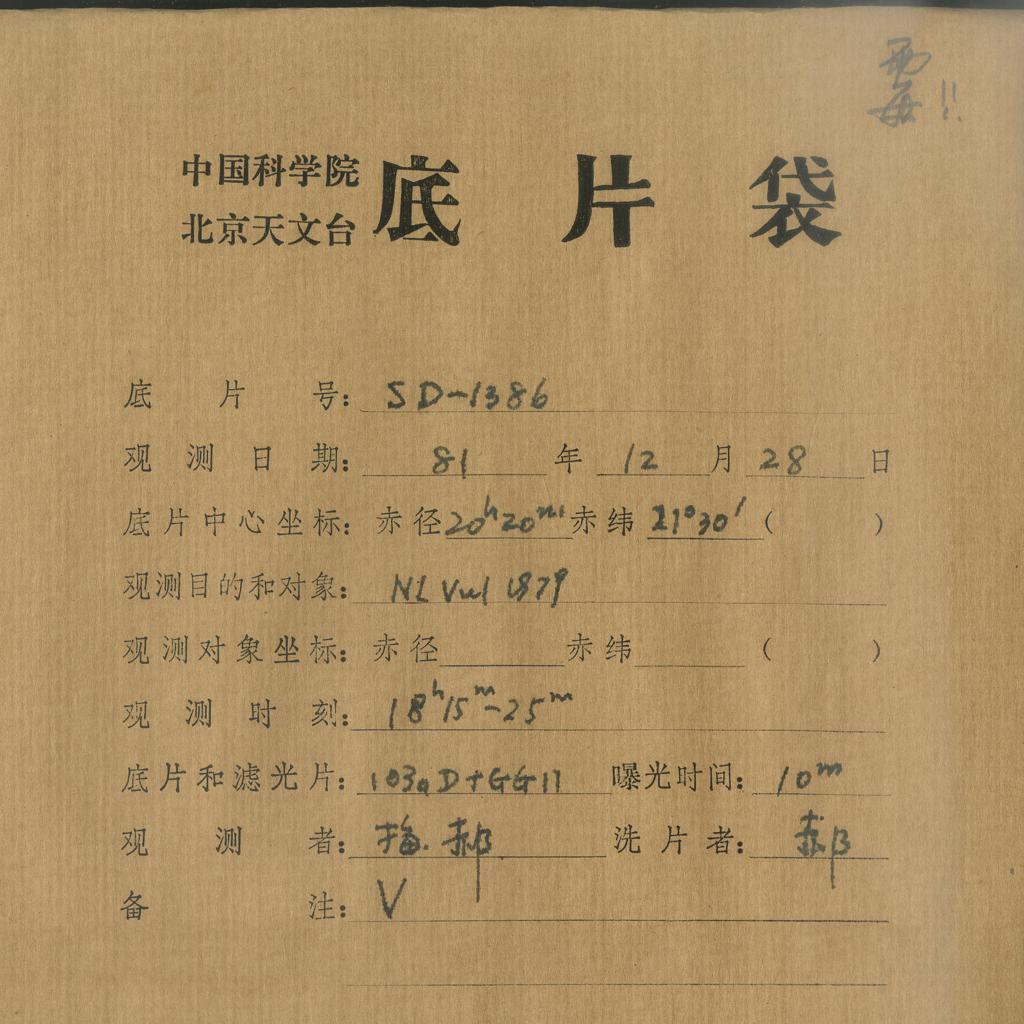 霉!!
中国科学院
北京天文台
底片袋
底片号: SD-1386
观测日期: 81年12月28日
底片中心坐标: 赤径20h20m赤纬21°30′( )
观测目的和对象: NL Vul 1879
观测对象坐标: 赤径 赤纬 ( )
观测时刻: 18h15m-25m
底片和滤光片: 103aD+GG11 曝光时间: 10m
观测者: 郝 洗片者: 郝
备注: V